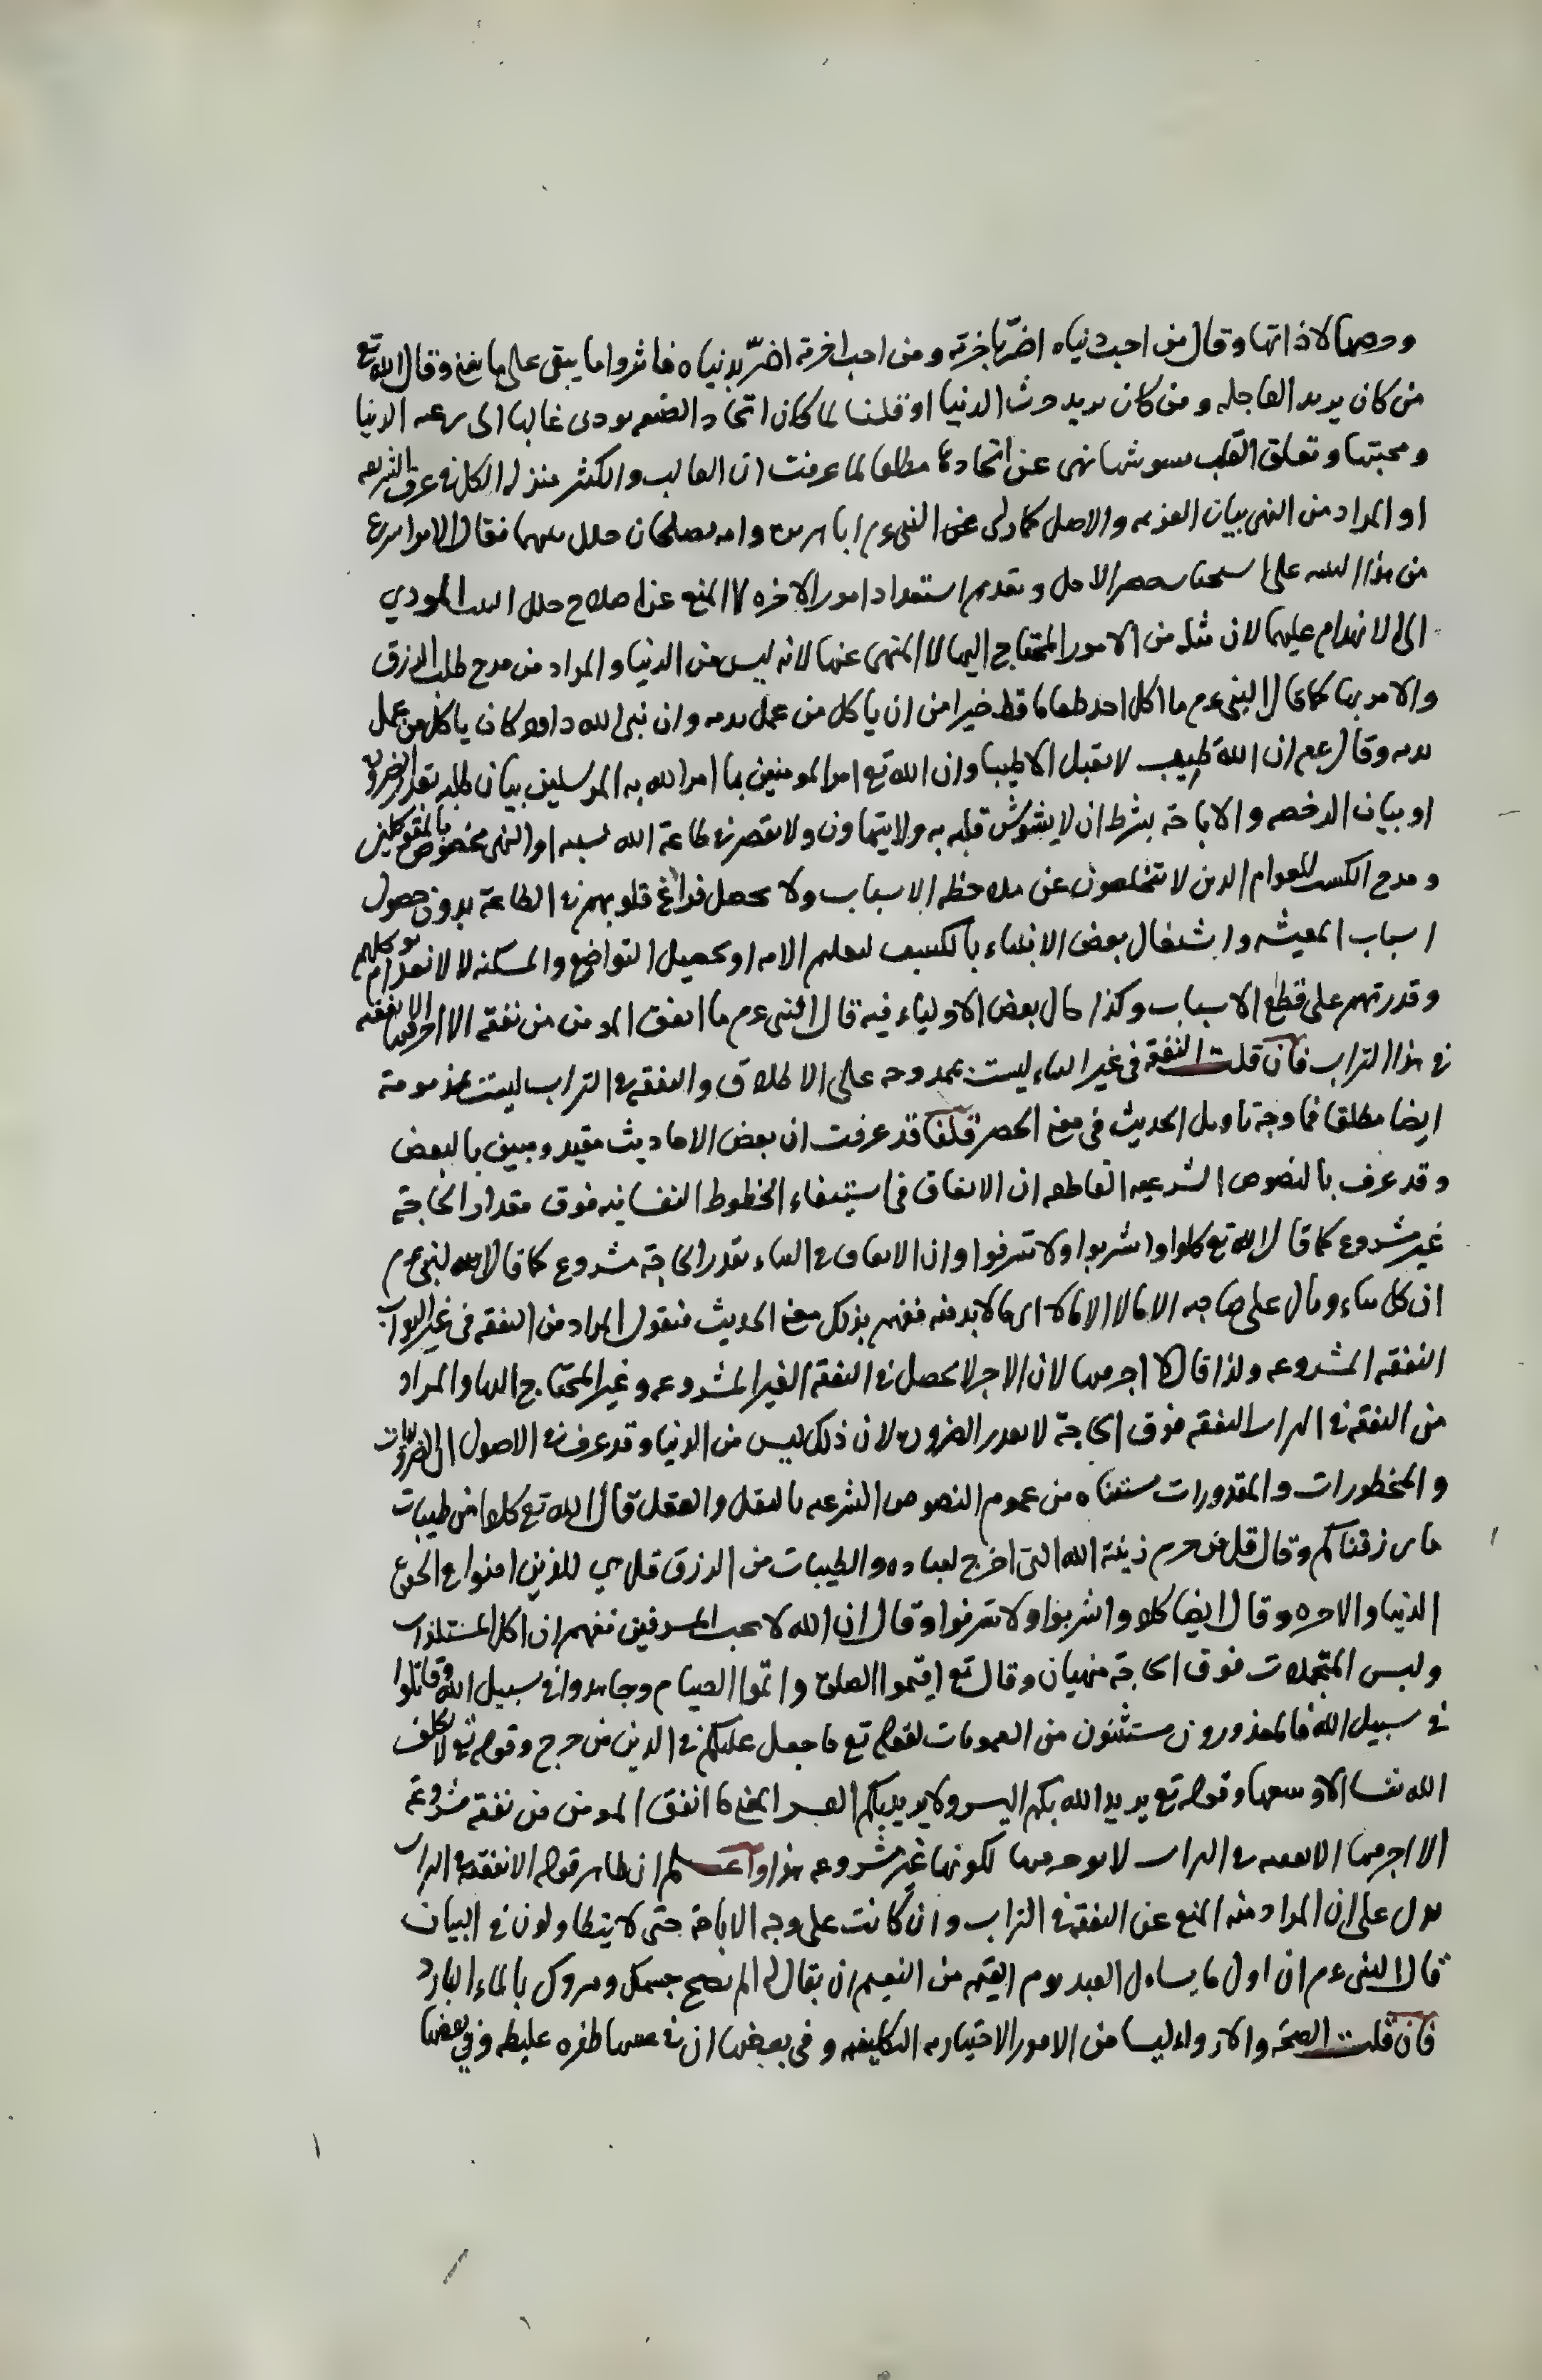 وحصها لا ذاتها وقال من احب دنياه اضرّ باخرته ومن احب اخرته اضرّ بدنياه فاثروا ما يبقى على ما يفنى وقال الله تع
من كان يريد العاجله ومن كان يريد حرث الدنيا او قلنا لما كان اتخاد الضيعه يودى غالبا الى رغبه الدنيا
ومحبتها وتعلق القلب نهى عن اتخادها مطلقا لما عرفت ان الغالب والاكثر منزله الكل فى عرف الشريعه
او المراد من النهى بيان العزيمه والاصل كما دلى عن النبى عم وامه يصلحان فقال الامر اسرع
من هذا على الامل وتقديم استعداد امور الاخره لا المنع عن اصلاح المودي
الى الانهدام عليهما لان مثله من الامور المحتاج اليها لا المنهى عنها لانه ليس من الدنيا والمراد من مدح طلب الرزق
والامر بها كما قال النبى عم ما اكل احد طعاما قط خيرا من ان ياكل من عمل يديه وان نبى الله داود كان ياكل من عمل
يديه وقال عم ان الله طيب لا يقبل الا طيبا وان الله تع امر المومنين بما امر الله به المرسلين بيان طلبه بقدر الضروره
او بيان الرخصه والاباحة بشرط ان لا يشوش قلبه به ولا يتهاون ولا يقصر فى طاعة الله بسببه او النهى مخصوص بالمتوكلين
ومدح الكسب للعوام الدين لا تتخلصون عن ملاحظه الاسباب ولا يحصل فراغ قلوبهم فى الطاعة بدون حصول
اسباب المعيشه واشتغال بعض الانبياء بالكسب لتعليم الامه او تحصيل التواضع والمسكنه لا لانعدام توكلهم
وقدرتهم على قطع الاسباب وكذا حال بعض الاولياء فيه قال النبى عم ما انفق المومن من نفقة الا اجر فيها الا نفقته
فى هذا التراب فان قلت النفقة فى غير البناء ليست بممدوحه على الاطلاق والنفقه فى التراب ليست بمذمومة
ايضا مطلقا فما وجه تاويل الحديث فى معنى الحصر قلنا قد عرفت ان بعض الاحاديث مقيد ومبين بالبعض
وقد عرف بالنصوص الشرعيه القاطعه ان الانفاق فى استيفاء الحظوظ النفسانيه فوق مقدار الحاجة
غير مشروع كما قال الله تع كلوا واشربوا ولا تسرفوا وان الانفاق فى البناء بقدر الحاجة مشروع كما قال النبى عم
ان كل بناء وبال على صاحبه الا مالا الا مالا اى مالا بد منه ففهم بذلك معنى الحديث فنقول المراد من النفقه فى غير التراب
النفقه المشروعه ولذا قال الا اجر فيها لان الاجر لا يحصل فى النفقة الغير المشروعه وغير المحتاج اليها والمراد
من النفقه فى التراب النفقه فوق الحاجة لا بقدر الضرورة لان ذلك ليس من الدنيا وقد عرف فى الاصول ان الضرورات
والمحظورات والمقدورات مستثناه من عموم النصوص الشرعيه بالنقل والعقل قال الله تع كلوا من طيبات
ما رزقناكم وقال قل من حرم زينة الله التى اخرج لعباده والطيبات من الرزق قل هى للذين امنوا فى الحيوة
الدنيا والاخره وقال ايضا كلوا واشربوا ولا تسرفوا وقال ان الله لا يحب المسرفين ففهم ان اكل المستلذات
ولبس المتجملات فوق الحاجة منهيان وقال تع اقيموا الصلوة واتموا الصيام وجاهدوا فى سبيل الله وقاتلوا
فى سبيل الله فالمعذورون مستثنون من العمومات لقوله تع ما جعل عليكم فى الدين من حرج وقوله تع لا يكلف
الله نفسا الا وسعها وقوله تع يريد الله بكم اليسر ولا يريد بكم العسر المعنى ما انفق المومن من نفقه مشروعة
الا اجر فيها الا نفقته فى التراب لا يوجر فيها لكونها غير مشروعه هذا واعلم ان ظاهر قوله الا نفقته فى التراب
يدل على ان المراد منه المنع عن النفقه فى التراب وان كانت على وجه الاباحة حتى لا يتطاولون فى البيان
قال النبى عم ان اول ما يساءل العبد يوم القيمه من النعيم ان يقال له الم نصح جسمك ونروك بالماء البارد
فان قلت الصحة والارواء ليسا من الامور الاختياريه التكليفيه وفى بعضها ان فى غليظه وفى بعضها